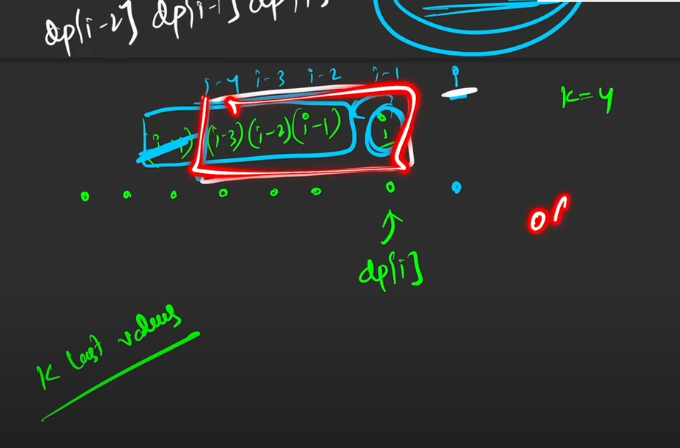 dp[i-2] dp[i-1] dp[i]
i-4 i-3 i-2 i-1 i
K=4
(i-4) (i-3) (i-2) (i-1) i
dp[i]
K last values